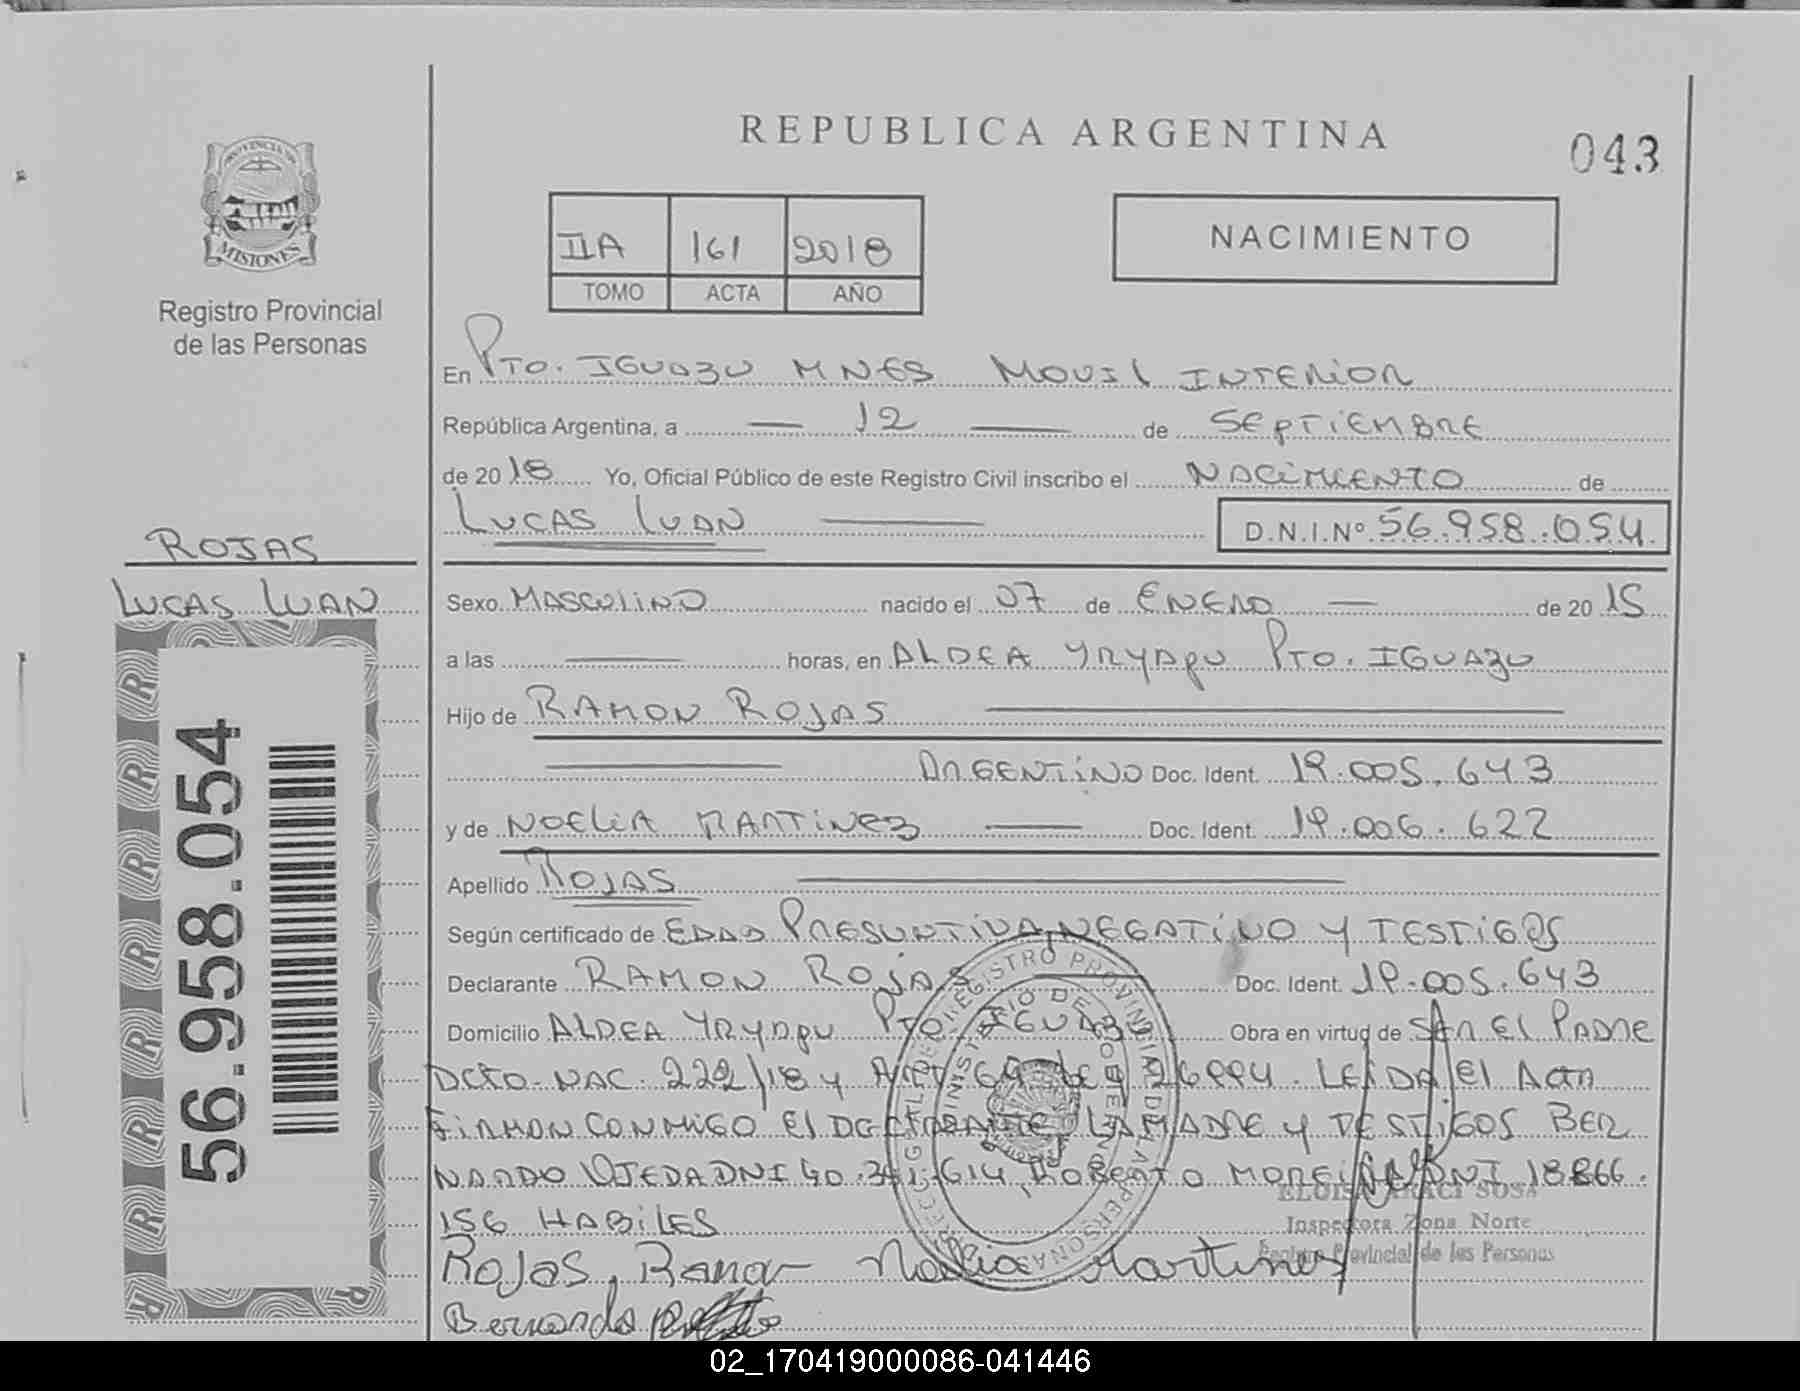 REPUBLICA ARGENTINA
043
PROVINCIA DE
MISIONES
Registro Provincial
de las Personas
IIA 161 2018
TOMO ACTA AÑO
NACIMIENTO
En PTO. IGUAZU MNES MOVIL INTERIOR
República Argentina, a — 12 — de SEPTIEMBRE
de 2018 Yo, Oficial Público de este Registro Civil inscribo el NACIMIENTO de
LUCAS LUAN —
D.N.I.Nº 56.958.054.
ROJAS
LUCAS LUAN
56.958.054
Sexo MASCULINO nacido el 07 de ENERO — de 2015
a las — horas, en ALDEA YRYAPU PTO. IGUAZU
Hijo de RAMON ROJAS —
— ARGENTINO Doc. Ident. 19.005.643
y de NOELIA MARTINEZ — Doc. Ident. 19.006.622
Apellido ROJAS —
Según certificado de EDAD PRESUNTIVA, NEGATIVO Y TESTIGOS
Declarante RAMON ROJAS — Doc. Ident. 19.005.643
Domicilio ALDEA YRYAPU PTO. IGUAZU Obra en virtud de SER EL PADRE
DCTO. NAC. 222/18 Y ART 69 DE LEY 26994. LEIDA EL ACTA
FIRMAN CONMIGO EL DECLARANTE LA MADRE Y TESTIGOS BER
NARDO OJEDA DNI 40.341.614 ROBERTO MOREIRA DNI 18866.
156 HABILES
ELOISA ARACI SOSA
Inspectora Zona Norte
Registro Provincial de las Personas
Rojas, Ramon Noelia Martinez
Bernardo
02_170419000086-041446